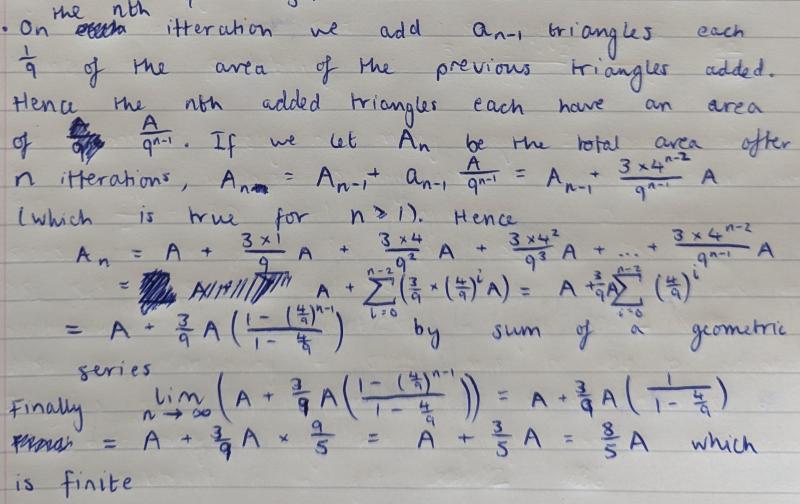 the nth
. On itteration we add a_{n-1} triangles each
1/9 of the area of the previous triangles added.
Hence the nth added triangles each have an area
of A/9^{n-1}. If we let A_n be the total area after
n itterations, A_n = A_{n-1} + a_{n-1} A/9^{n-1} = A_{n-1} + (3×4^{n-2})/9^{n-1} A
(which is true for n ≥ 1). Hence
A_n = A + (3×1)/9 A + (3×4)/9^2 A + (3×4^2)/9^3 A + ... + (3×4^{n-2})/9^{n-1} A
= A + ∑_{i=0}^{n-2} (3/9 × (4/9)^i A) = A + 3/9 A ∑_{i=0}^{n-2} (4/9)^i
= A + 3/9 A ((1 - (4/9)^{n-1})/(1 - 4/9)) by sum of a geometric
series
Finally lim_{n→∞} (A + 3/9 A ((1 - (4/9)^{n-1})/(1 - 4/9))) = A + 3/9 A (1/(1 - 4/9))
= A + 3/9 A × 9/5 = A + 3/5 A = 8/5 A which
is finite